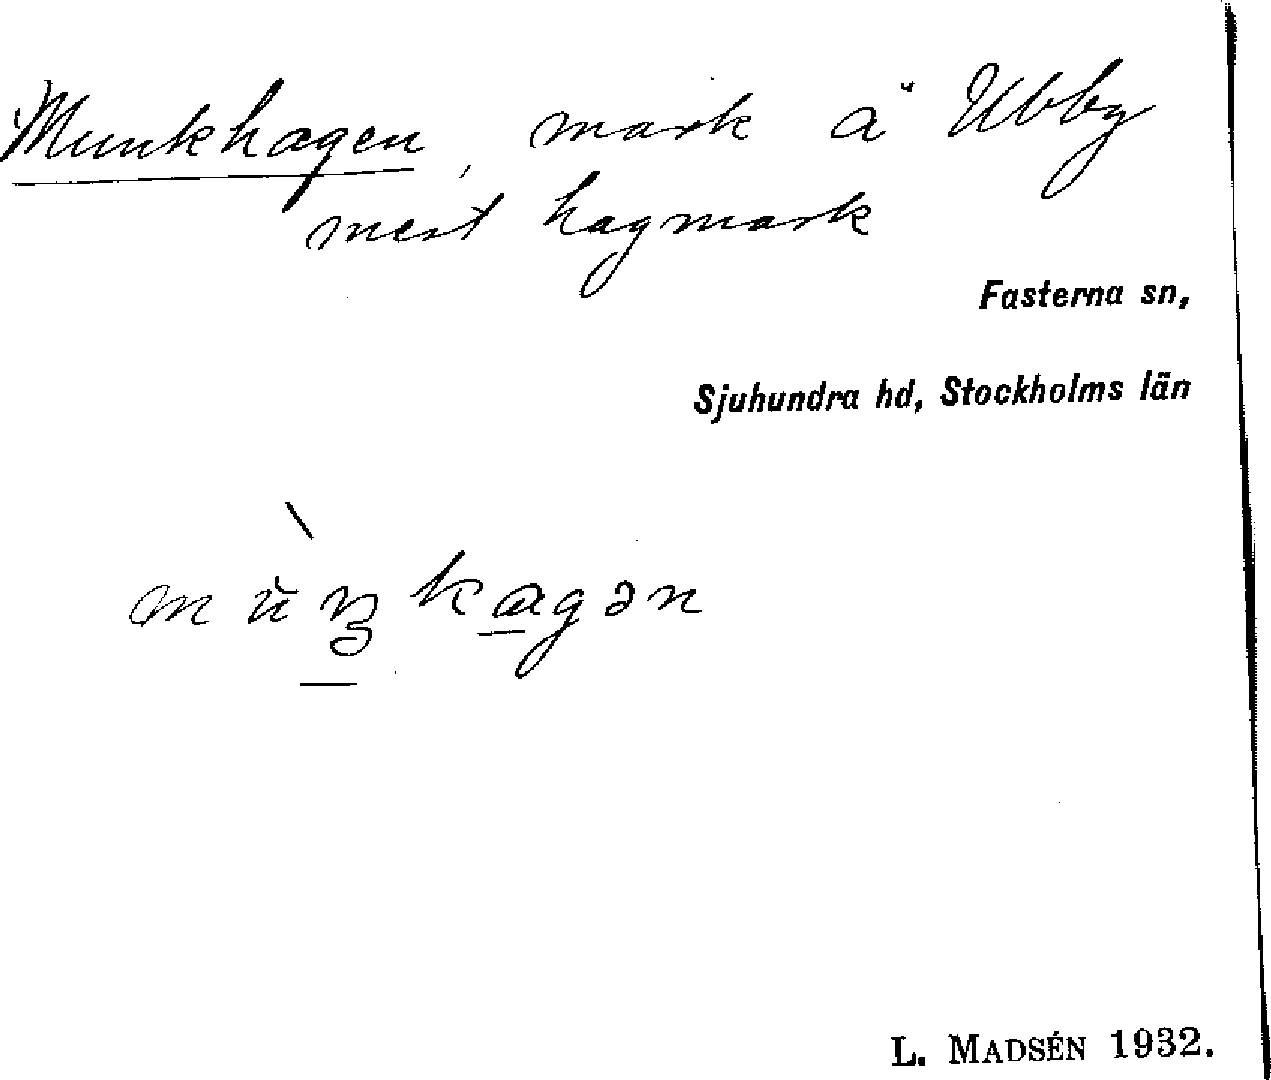 Munkhagen, mark å Ubby
mest hagmark
Fasterna sn,
Sjuhundra hd, Stockholms län
mùŋkagən
L. MADSÉN 1932.